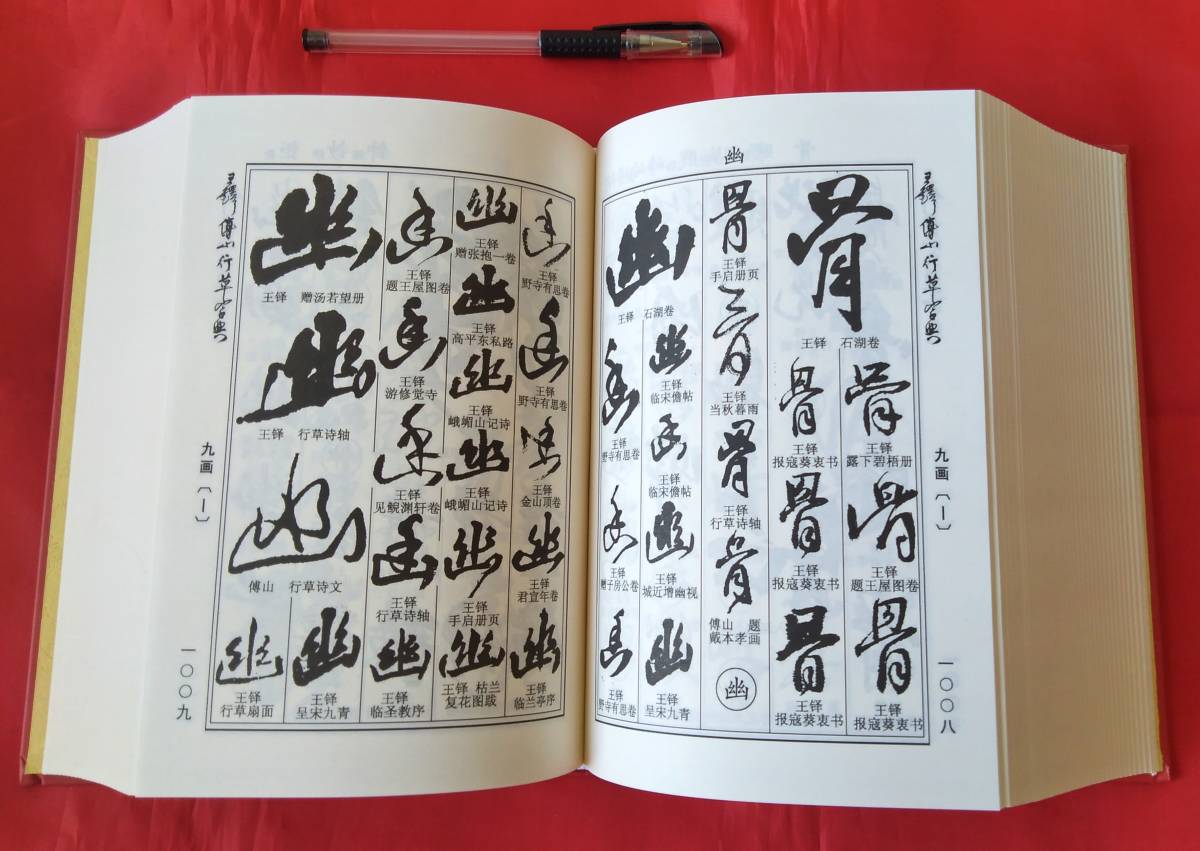 幽
王铎傅山行草字典
九画〔丨〕
一〇〇八
骨
王铎 石湖卷
骨
王铎
露下碧梧册
骨
王铎
题王屋图卷
骨
王铎
报寇葵衷书
骨
王铎
报寇葵衷书
骨
王铎
报寇葵衷书
骨
王铎
报寇葵衷书
骨
王铎
手启册页
骨
王铎
当秋暮雨
骨
王铎
行草诗轴
骨
傅山 题
戴本孝画
幽
幽
王铎 石湖卷
幽
王铎
临宋儋帖
幽
王铎
临宋儋帖
幽
王铎
城近增幽视
幽
王铎
呈宋九青
幽
王铎
野寺有思卷
幽
王铎
赠子房公卷
幽
王铎
野寺有思卷
幽
王铎
野寺有思卷
幽
王铎
野寺有思卷
幽
王铎
金山顶卷
幽
王铎
君宣年卷
幽
王铎
临兰亭序
幽
王铎
赠张抱一卷
幽
王铎
高平东私路
幽
王铎
峨嵋山记诗
幽
王铎
峨嵋山记诗
幽
王铎
手启册页
幽
王铎 枯兰
复花图跋
幽
王铎
题王屋图卷
幽
王铎
游修觉寺
幽
王铎
见鲵渊轩卷
幽
王铎
行草诗轴
幽
王铎
临圣教序
幽
王铎 赠汤若望册
幽
王铎 行草诗轴
幽
傅山 行草诗文
幽
王铎
呈宋九青
幽
王铎
行草扇面
王铎傅山行草字典
九画〔丨〕
一〇〇九